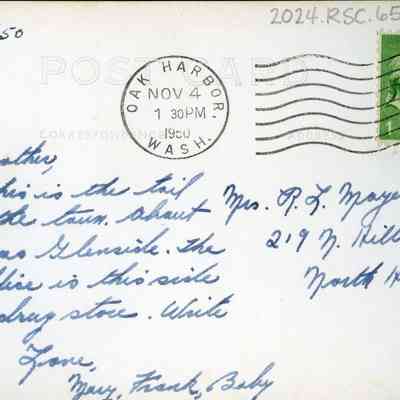 2024.RSC.65
50
POST CARD
CORRESPONDENCE
ADDRESS
OAK HARBOR.
NOV 4
1 30PM
1950
WASH.
1
other,
his is the tail
the town. About
as Glenside. The
fice is this side
drug store. Write
Love,
Mary, Frank, Baby
Mrs. R. L. Moye
219 N. Hill
North H